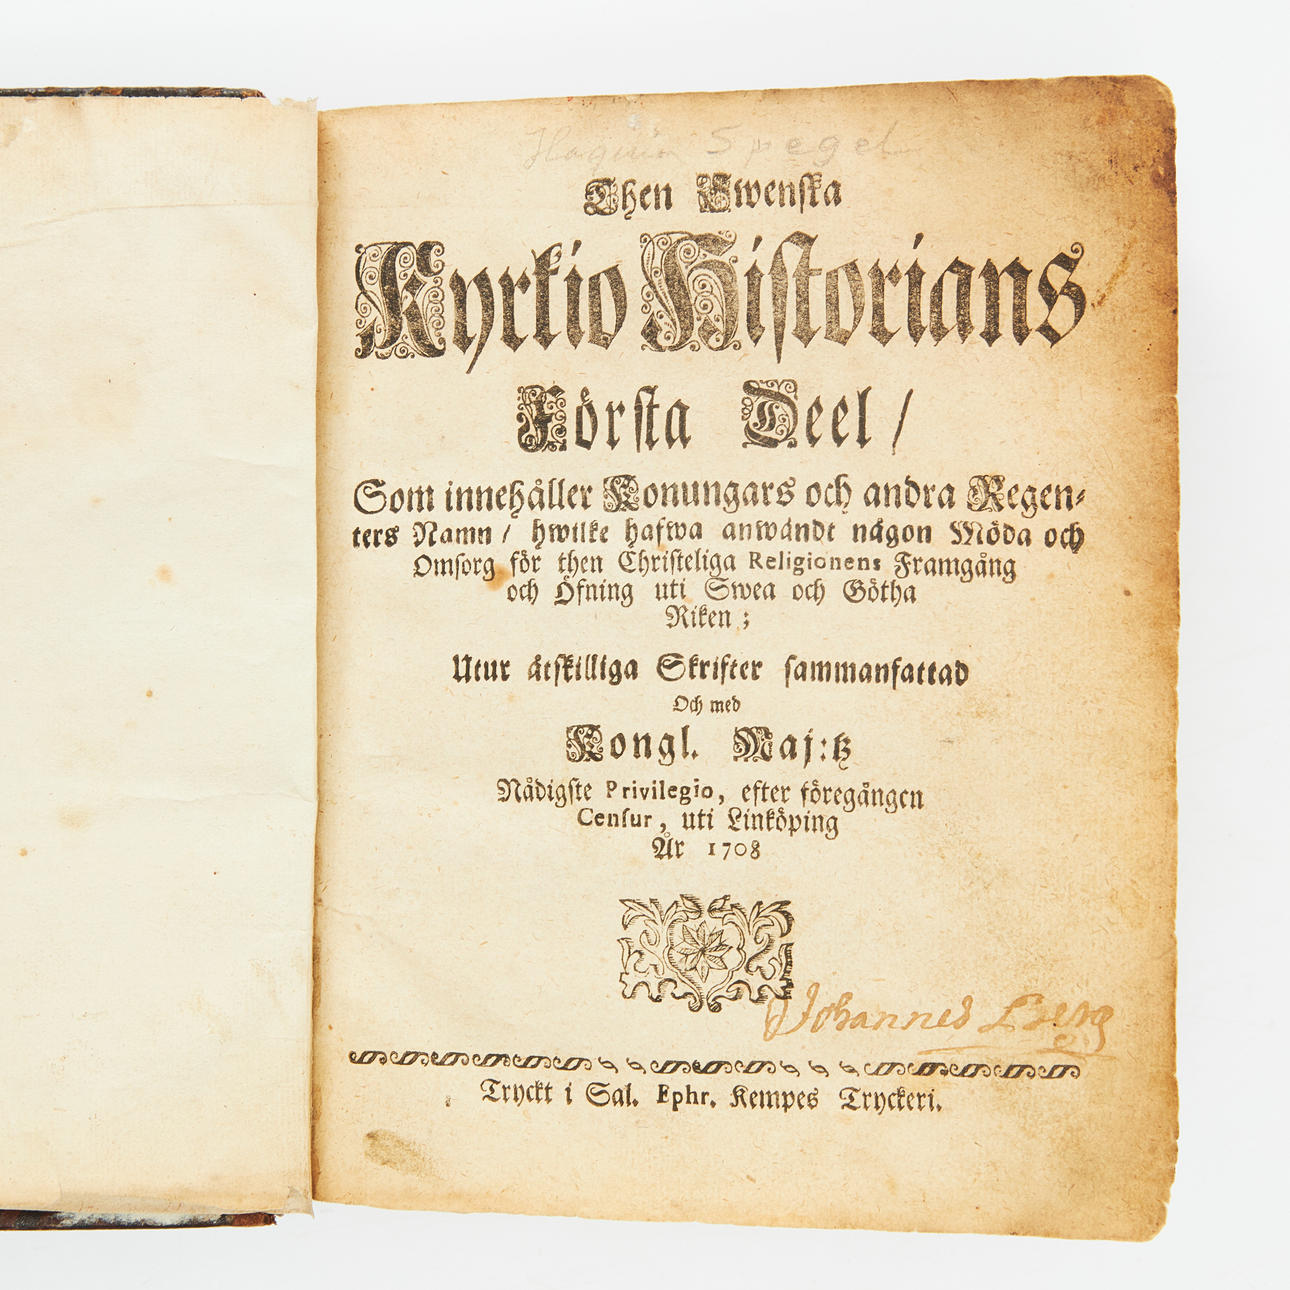 Haquin Spegel
Then Swenska
Kyrkio Historians
Första Deel /
Som innehåller Konungars och andra Regen-
ters Namn / hwilke hafwa anwändt någon Möda och
Omsorg för then Christeliga Religionens Framgång
och Öfning uti Swea och Götha
Riken ;
Utur åtskilliga Skrifter sammanfattad
Och med
Kongl. Maj:tz
Nådigste Privilegio, efter föregången
Censur, uti Linköping
År 1708
Johannes Berg
Tryckt i Sal. Ephr. Kempes Tryckeri.